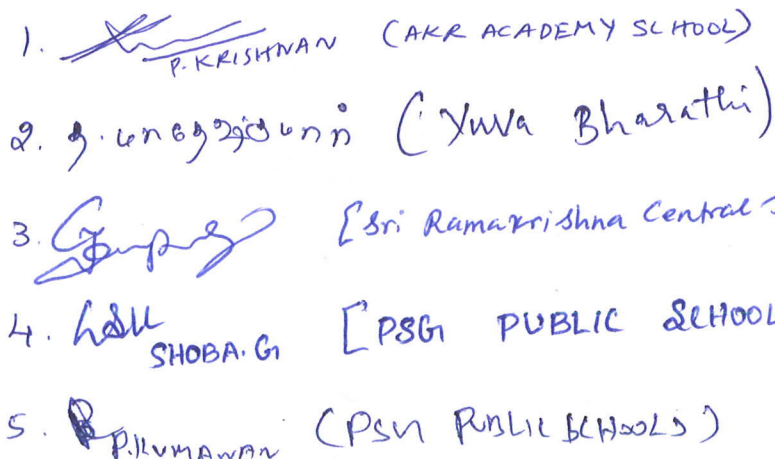 1. P. KRISHNAN (AKR ACADEMY SCHOOL)
2. (Yuva Bharathi)
3. [Sri Ramakrishna Central
4. SHOBA. G [PSG PUBLIC SCHOOL
5. P. KUMANAN (PSG PUBLIC SCHOOLS)